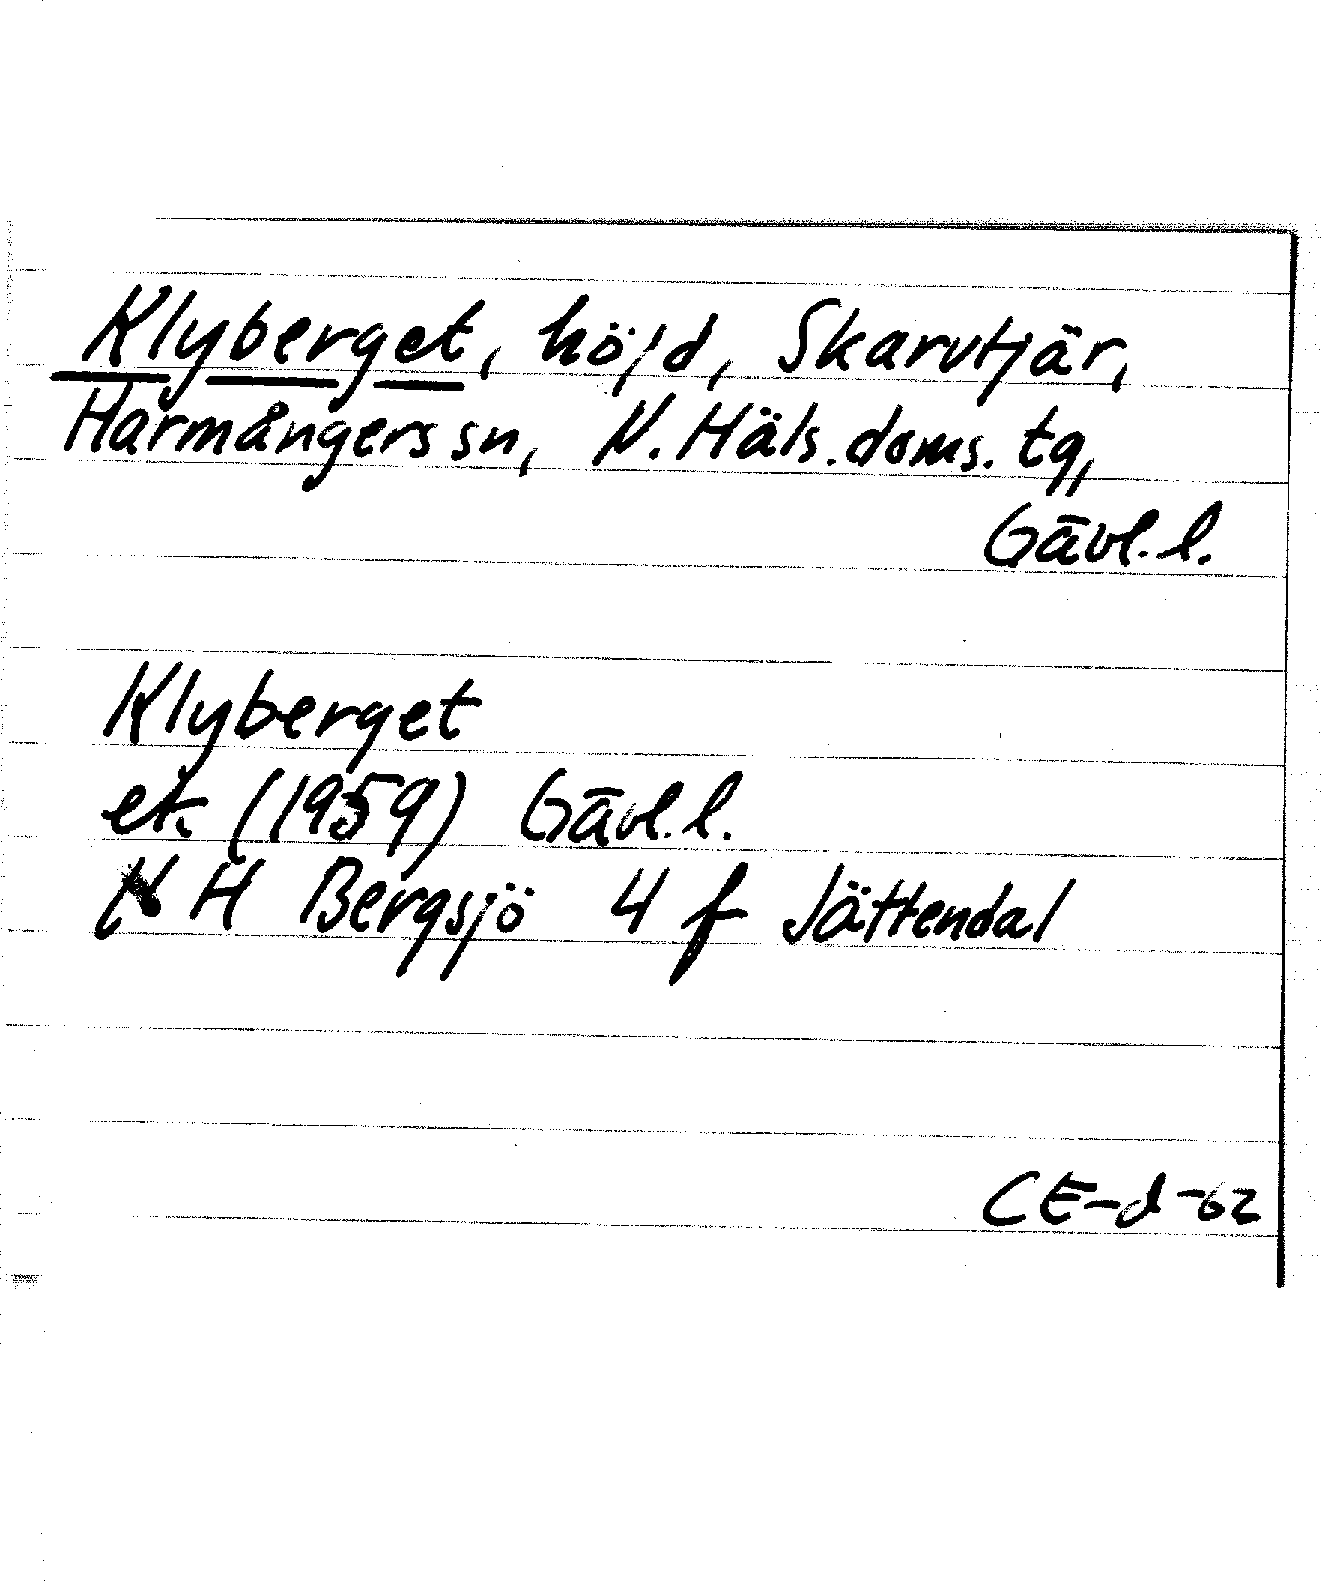 Klyberget, höjd, Skarvtjär,
Harmångers sn, N. Häls. doms. tg,
Gävl. l.
Klyberget
ek. (1959) Gävl. l.
H Bergsjö 4 f Jättendal
CE-d-62